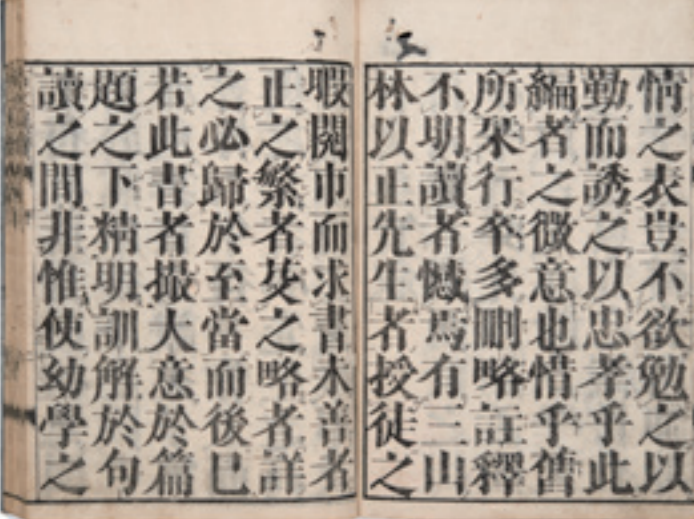 情之表豈不欲勉之以
勤而誘之以忠孝乎此
編者之微意也惜乎舊
所杂行夲多刪略註釋
不明讀者憾焉有三山
林以正先生者授徒之
暇閱市而求書未善者
正之繁者芟之略者詳
之必歸於至當而後已
若此書者撮大意於篇
題之下精明訓解於句
讀之間非惟使幼學之